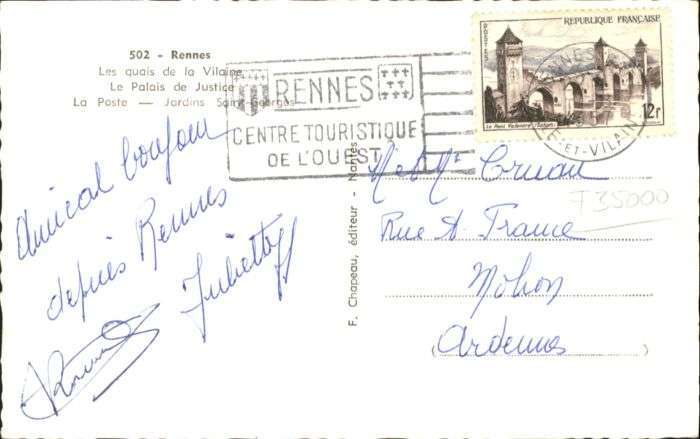 502 - Rennes
Les quais de la Vilaine
Le Palais de Justice
La Poste — Jardins Saint-Georges
RENNES
CENTRE TOURISTIQUE
DE L'OUEST
REPUBLIQUE FRANÇAISE
POSTES
Le Pont Valentré (Cahors)
12f
ET-VILAINE
Amical bonjour
depuis Rennes
Juliette
F. Chapeau, éditeur - Nantes
M et Me Cruau
Rue A. France
Mohon
(Ardennes)
T35000